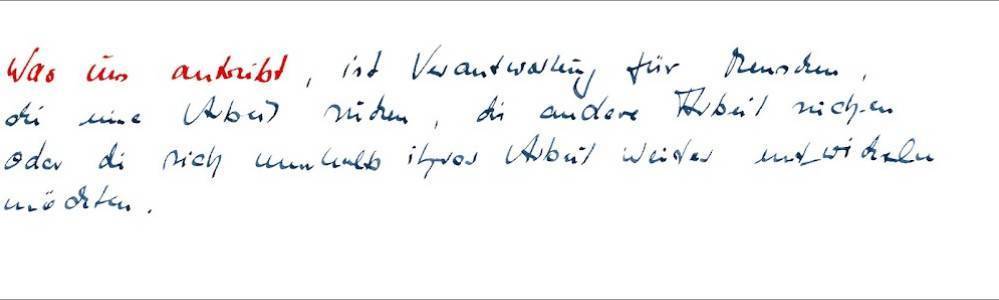 Was uns antreibt, ist Verantwortung für Menschen,
die eine Arbeit suchen, die andere Arbeit suchen
oder die sich innerhalb ihrer Arbeit weiter entwickeln
möchten.